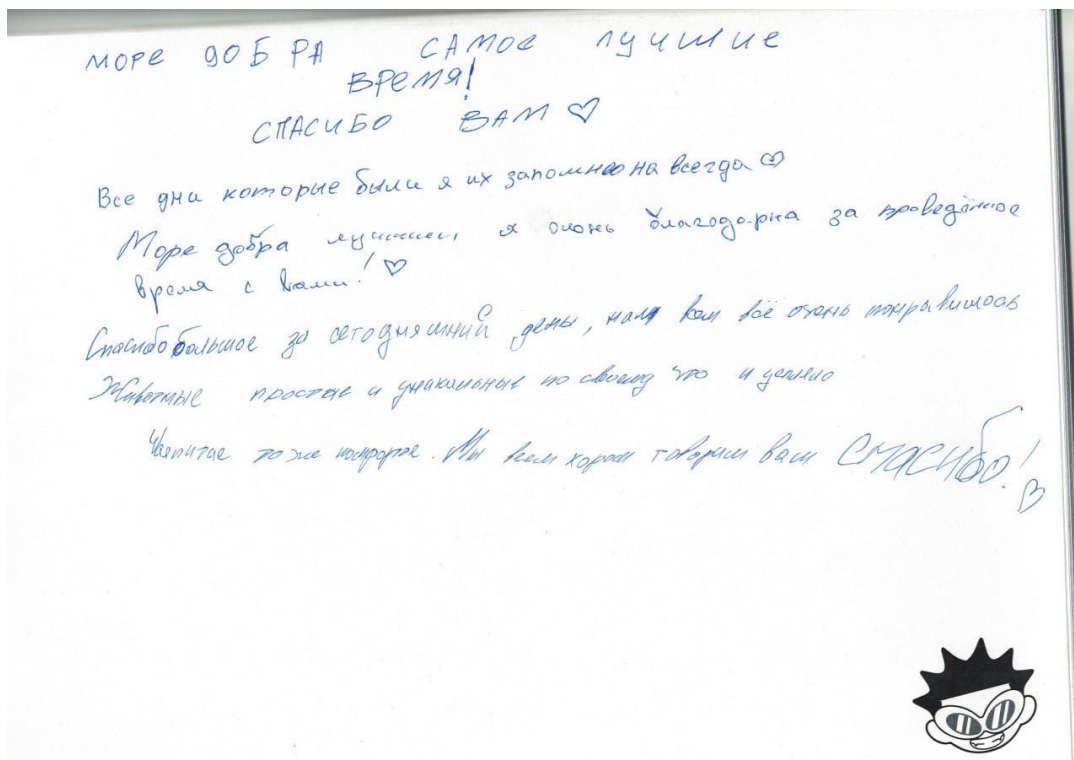 МОРЕ ДОБРА САМОЕ ЛУЧШИЕ
ВРЕМЯ!
СПАСИБО ВАМ ♡
Все дни которые были я их запомню на всегда ♡
Море добра я очень благодарна за проведённое
время с вами! ♡
Спасибо большое за сегодняшний день, нам всё очень понравилось
Животные простые и уникальные по своему что и
Чаепитие тоже. Мы всем хором говорим вам СПАСИБО! ♡